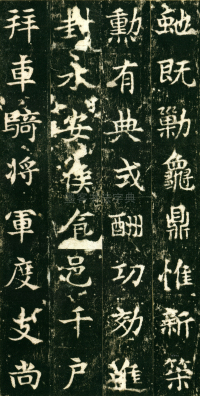 虵既勦龜鼎惟新築
勳有典式酬功効進
封永安侯食邑千户
拜車騎将軍度支尚